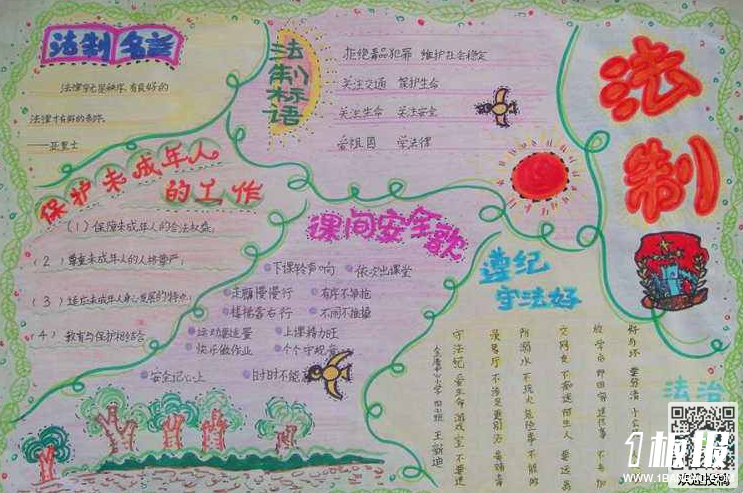 法制名言
法律就是秩序,有良好的
法律才有好的秩序。
——亚里士
法制标语
拒绝毒品犯罪 维护社会稳定
关注交通 保护生命
关注生命 关注安全
爱祖国 学法律
法制
保护未成年人
的工作
(1)保障未成年人的合法权益;
(2)尊重未成年人的人格尊严;
(3)适应未成年人身心发展的特点;
(4)教育与保护相结合
课间安全歌
下课铃声响 依次出课堂
走路慢慢行 有序不争抢
楼梯靠右行 不闹不推操
运动要适量 上课精力旺
快乐做作业 个个守规章
安全记心上 时时不能
遵纪
守法好
好与坏 要分清
交网友 不 陌生人
防溺水 不玩火 危险事 不能
守法纪 爱生命 游戏室 不要进
中心小学
法治
1板报
WWW.1BANBAO.COM
欢迎投稿